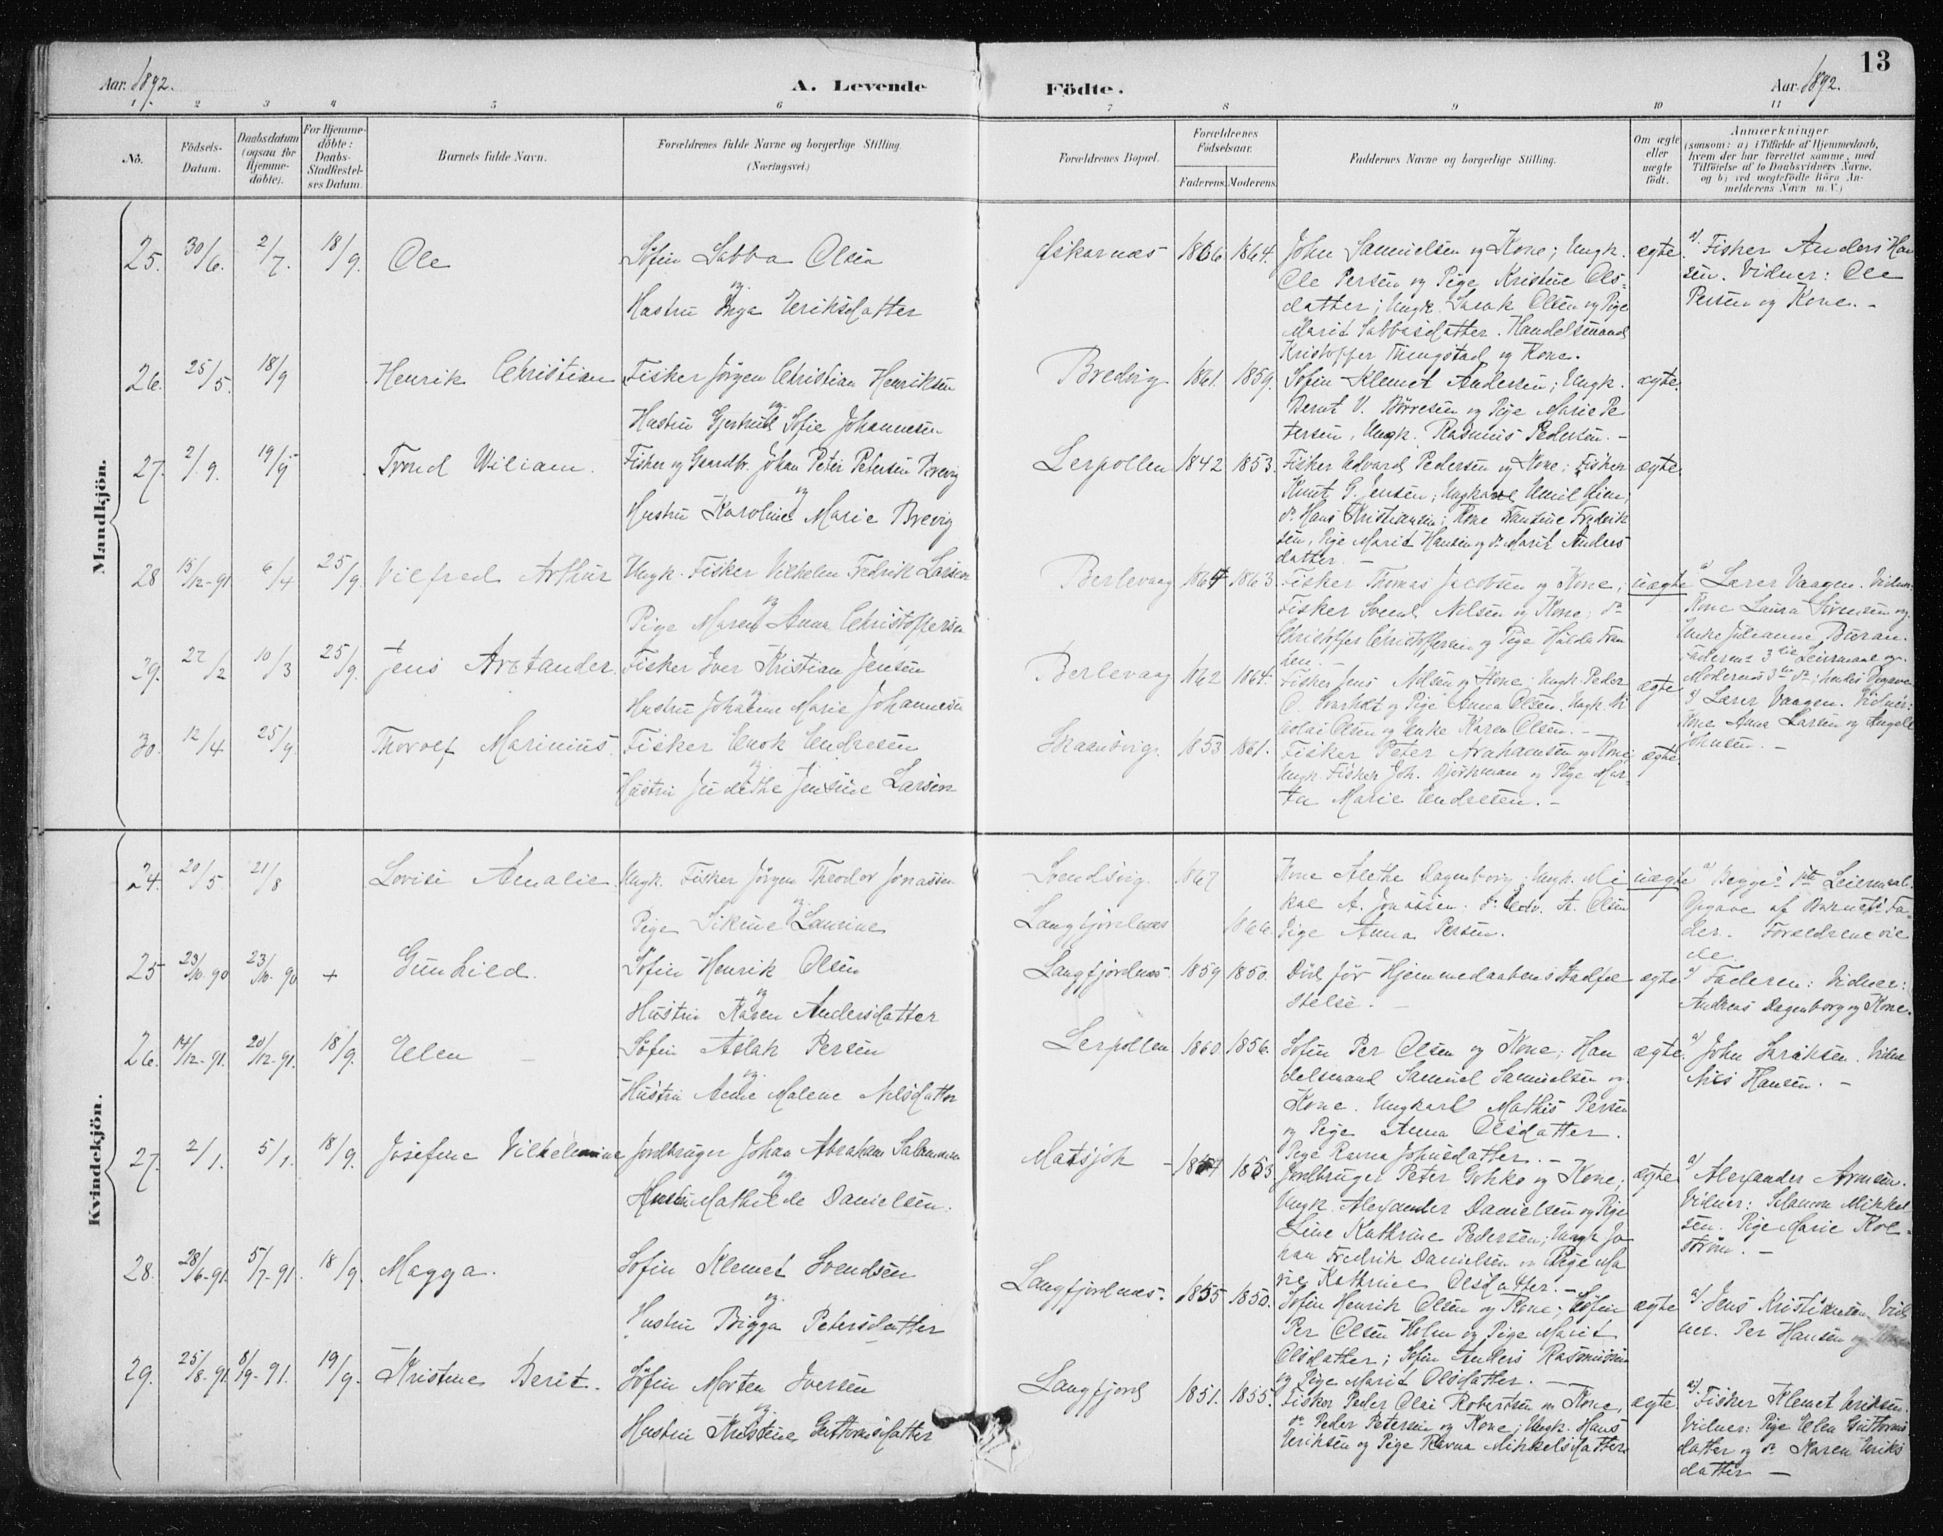 13
Aar. 1892.
A. Levende
Födte.
Aar. 1892.
1 2 3 4 5 6 7 8 9 10 11
Nö.
Födsels-
Datum.
Daabsdatum
(ogsaa for
Hjemme-
döbte).
For Hjemme-
döbte:
Daabs-
Stadfæstel-
ses Datum.
Barnets fulde Navn.
Forældrenes fulde Navne og borgerlige Stilling.
(Næringsvei.)
Forældrenes Bopæl.
Forældrenes
Födselsaar.
Faderens. Moderens.
Faddernes Navne og borgerlige Stilling.
Om ægte
eller
uægte
födt.
Anmærkninger
(saasom: a) i Tilfælde af Hjemmedaab,
hvem der har forrettet samme, med
Tilföielse af to Daabsvidners Navne,
og b) ved uægtefödte Börn An-
melderens Navn m. V.)
Mandkjön.
25. 30/6. 2/7. 18/9. Ole
Söfin Sabba Olsen
og
Hustru Inga Eriksdatter
1866. 1864.
John Samuelsen og Kone; Ungk.
Ole Persen og Pige Kristine Ols-
datter; Ungk. Olsen og Pige
Marit Sabbasdatter. Handelsmand
Kristoffer og Kone.
ægte.
a) Fisker Anders Han
sen. Vidner: Ole
Persen og Kone. -
26. 25/5. 18/9 Henrik Christian
Fisker Jörgen Christian Henriksen
og
Hustru Gjertrud Sofie Johannesen
Bredvig 1861. 1859.
Söfin Klemet Andersen; Ungk.
Bernt V. Börresen og Pige Marie Pe
tersen, Ungk. Rasmus Pedersen. -
ægte.
27. 2/9. 19/9 Trond Wiliam.
Fisker og Gaardbr. Johan Peter Petersen Brevig
og
Hustru Karoline Marie Brevig
Lerpollen 1842 1853.
Fisker Edvard Pedersen og Kone; Fisker
Knut G. Jensen; Ungkarl Emil
do Hans Kristiansen; Kone Fredrik
sen, Pige Marie Hansen og do Marit Anders
datter. -
ægte
28 15/12-91 6/4 25/9. Vilfred Arthur
Ungk. Fisker Vilhelm Fredrik Larsen
og
Pige Maren Anna Christoffersen
Berlevaag 1864. 1863.
Fisker Thomas Jacobsen og Kone;
Fisker Svend Nilsen og Kone; do
Christoffer Christoffersen og Pige Hulda
uægte
a) Lærer Vaagen. Vidner
Kone Laura Sörensen og
Enke Julianne Buran.
Faderens 3die Leiermaal og
Moderens 3die do;
29. 27/2 10/3 25/9. Jens
Fisker Iver Kristian Jensen
og
Hustru Johanne Marie Johannesen
Berlevaag 1862 1864.
Fisker Jens Nilsen og Kone; Ungk. Peder
O. og Pige Anna Olsen. Ungk. Ni
colai Olsen og Enke Karen Olsen. -
ægte
a) Lærer Vaagen. Vidner:
Kone Anna Larsen og
Johnsen. -
30. 12/4 25/9. Thorolf Marinius.
Fisker Enok Endresen
og
Hustru Judithe Jensine Larsen
Skaansvig. 1853 1861.
Fisker Peter Arahamsen og Kone;
Ungk. Fisker Joh. Björkman og Pige Mar-
ta Marie Endresen. -
ægte
Kvindekjön.
24. 20/5. 21/8 Lovise Amalie
Ungk. Fisker Jörgen Theodor Jonassen
og
Pige Sikine Laurine
Svendsvig. 1867
Langfjordnes 1866.
Kone Alethe Dagenborg; Ungk. Mi
kal A. Jonassen. do Edv. A. Olsen
Pige Anna Persen.
uægte
a) Begges 1ste Leiermaal.
Opgave af Barnets Fa-
der. Forældrene vie
de.
25 23/10-90 23/10-90 + Gunhild.
Söfin Henrik Olsen
og
Hustru Karen Andersdatter
Langfjordnes 1859 1850.
Död för Hjemmedaabens Stadfæ
stelse. -
ægte
a) Faderen: Vidner:
Andreas Dagenborg og Kone.
26. 14/12-91. 20/12-91. 18/9. Elen -
Söfin Aslak Persen
og
Hustru Anne Malene Nilsdatter
Lerpollen 1860 1856.
Söfin Per Olsen og Kone; Han
delsmand Samuel Samuelsen og
Kone. Ungkarl Mathis Persen
og Pige Anna Olsdatter.
Pige Ravna Johnsdatter. -
ægte.
a) John Vidne
Nils Hansen. -
27. 2/1. 5/1. 18/9. Josefine Vilhelmine
Jordbruger Johan Abraham Salamonsen
og
Hustru Mathilde Danielsen.
Matsjok - 1854 1853
Jordbruger Peter Gohka og Kone;
Ungk. Alexander Danielsen og Pige
Line Kathrine Pedersen; Ungk. Jo
han Fredrik Danielsen og Pige Ma
rie Kathrine Olsdatter. -
ægte
a) Alexander
Vidner: Salamon Mikkel
sen. Pige Marie
-
28. 28/6-91. 5/7-91. 18/9. Magga.
Söfin Klemet Svendsen
og
Hustru Bigga Petersdatter
Langfjordnes. 1855 1850.
Söfin Henrik Olsen og Kone; Söfin
Per Olsen Holm og Pige Marit
Olsdatter; Söfin Anders Rasmussen
og Pige Marit Olsdatter. -
ægte
a) Jens Kristiansen. Vid
ner. Per Hansen og
29. 25/8-91 8/9-91. 19/9. Kristine Berit.
Söfin Morten Iversen
og
Hustru Kristine Guttormsdatter
Langfjord 1851. 1855.
Fisker Peder Olai Robertsen og Kone,
do Peder Petersen og Kone; Ungk. Hans
Eriksen og Pige Ravna Mikkelsdatter.
ægte
a) Fisker Klemet Eriksen.
Vidner: Pige Elen Guttorms
datter og do Karen Eriks
datter -